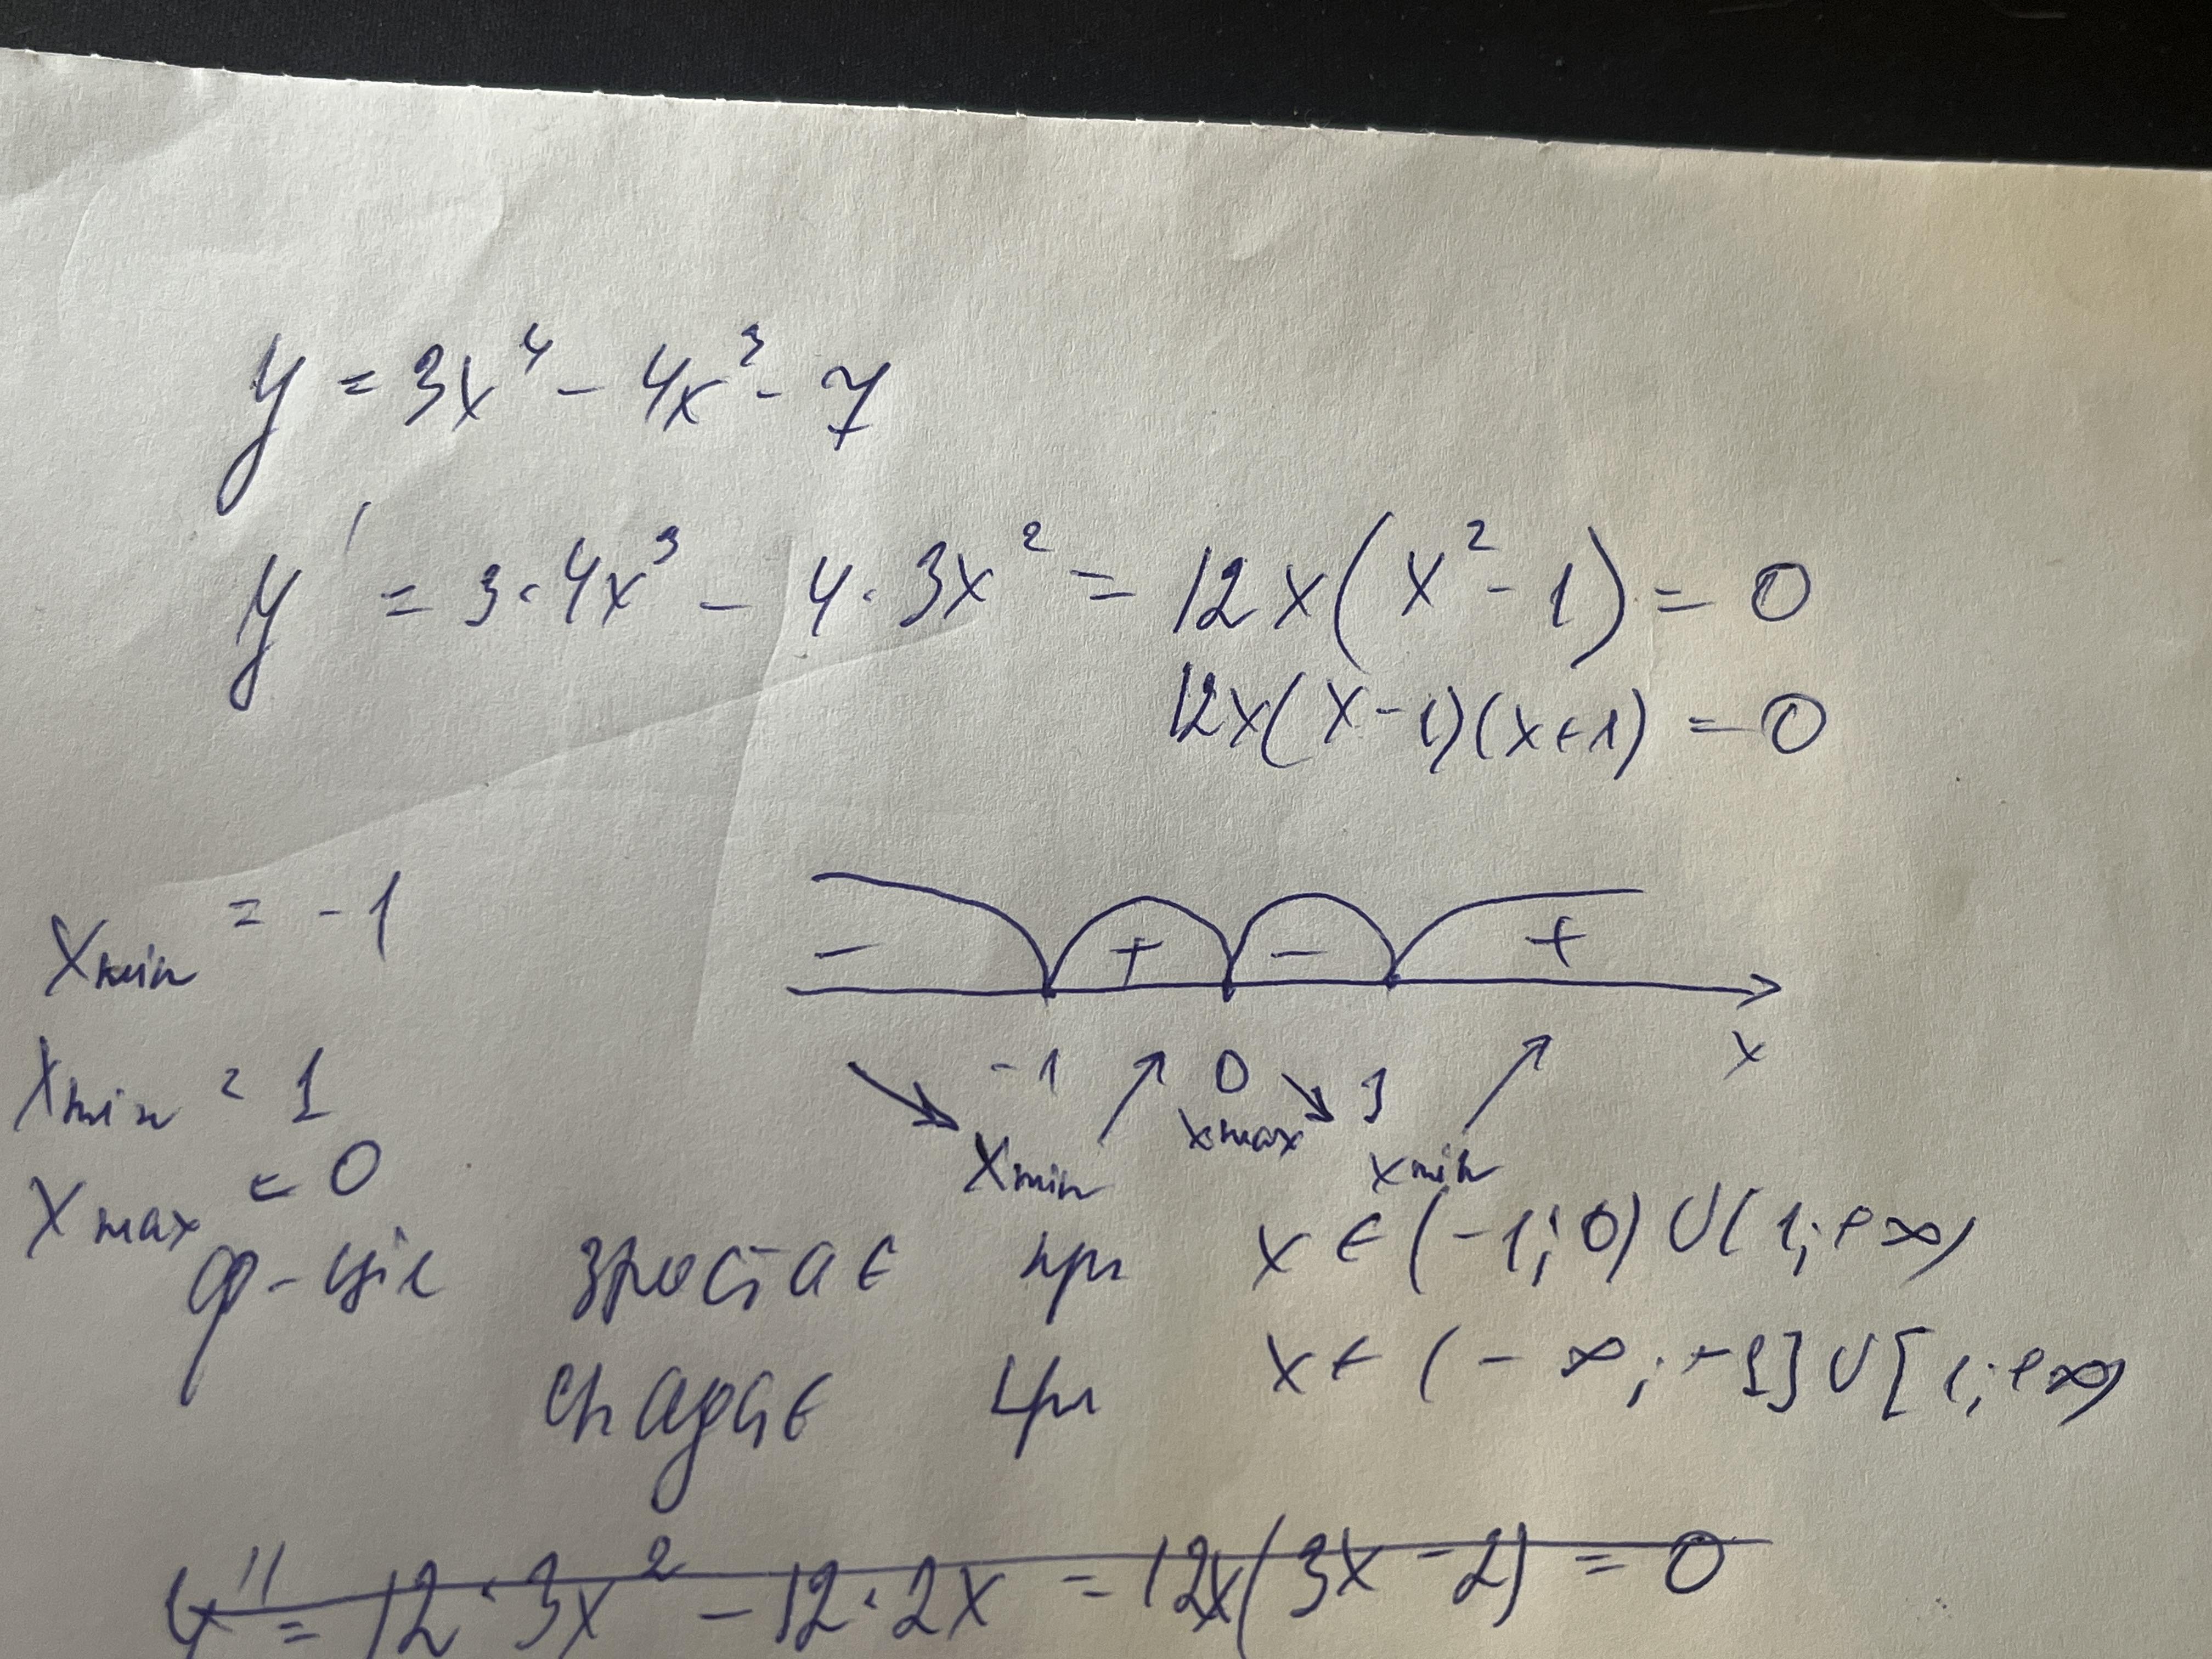 y = 3x⁴ - 4x³ - 7
y' = 3·4x³ - 4·3x² = 12x(x² - 1) = 0
12x(x-1)(x+1) = 0
- + - +
-1 0 1 x
xmin xmax xmin
xmin = -1
xmin = 1
xmax = 0
ф-ція зростає при x ∈ (-1; 0) ∪ (1; +∞)
спадає при x ∈ (-∞; -1] ∪ [1; +∞)
y'' = 12·3x² - 12·2x = 12x(3x - 2) = 0